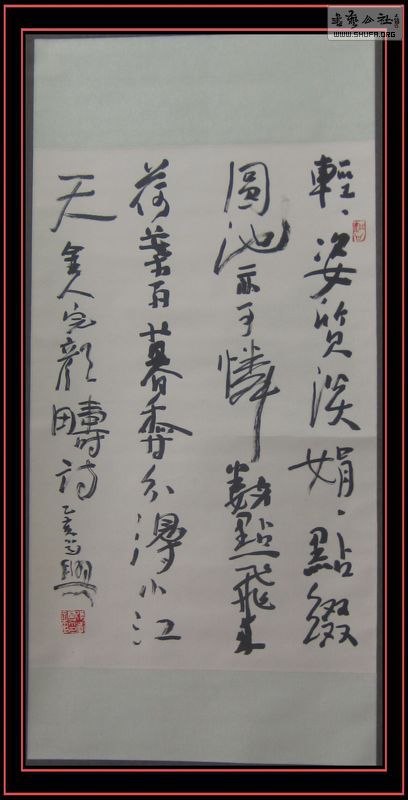 書藝公社
WWW.SHUFA.ORG
輕、姿質淡娟、點綴
圓池亦可憐數點飛来
荷葉雨暮香分得小江
天 金人完顏疇詩 乙亥